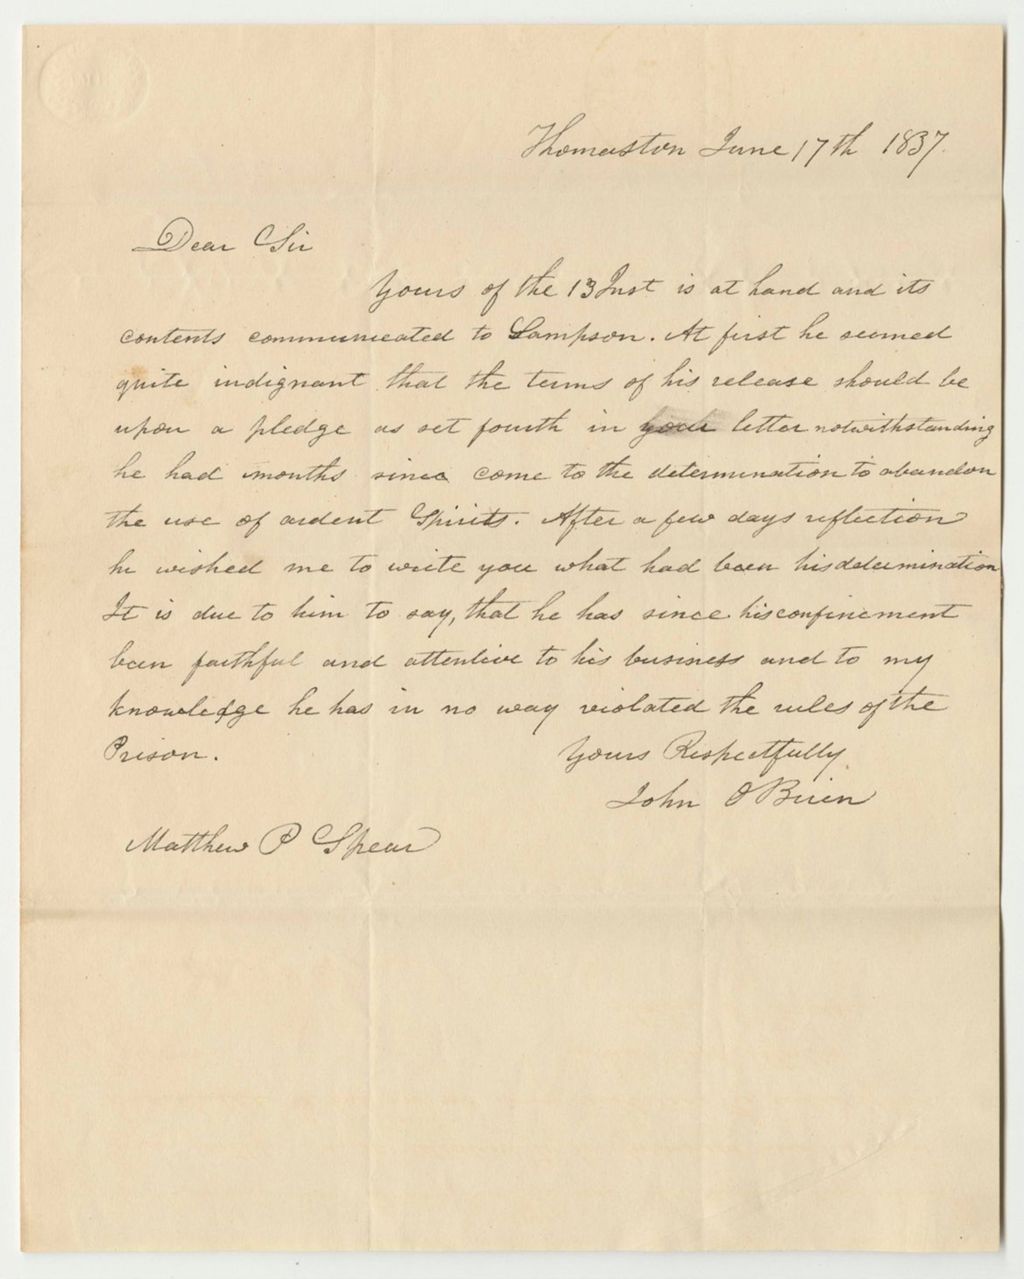 Thomaston June 17th 1837.
Dear Sir
Yours of the 13 Inst is at hand and its
contents communicated to Sampson. At first he seemed
quite indignant that the terms of his release should be
upon a pledge as set fourth in your letter notwithstanding
he had months since come to the determination to abandon
the use of ardent Spirits. After a few days reflection
he wished me to write you what had been his determination
It is due to him to say, that he has since his confinement
been faithful and attentive to his business and to my
knowledge he has in no way violated the rules of the
Prison.
Yours Respectfully
John O Brien
Matthew P Spear